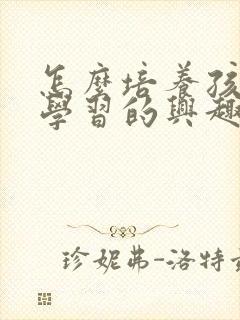 怎麼培養孩
學習的興趣
珍妮弗-洛特